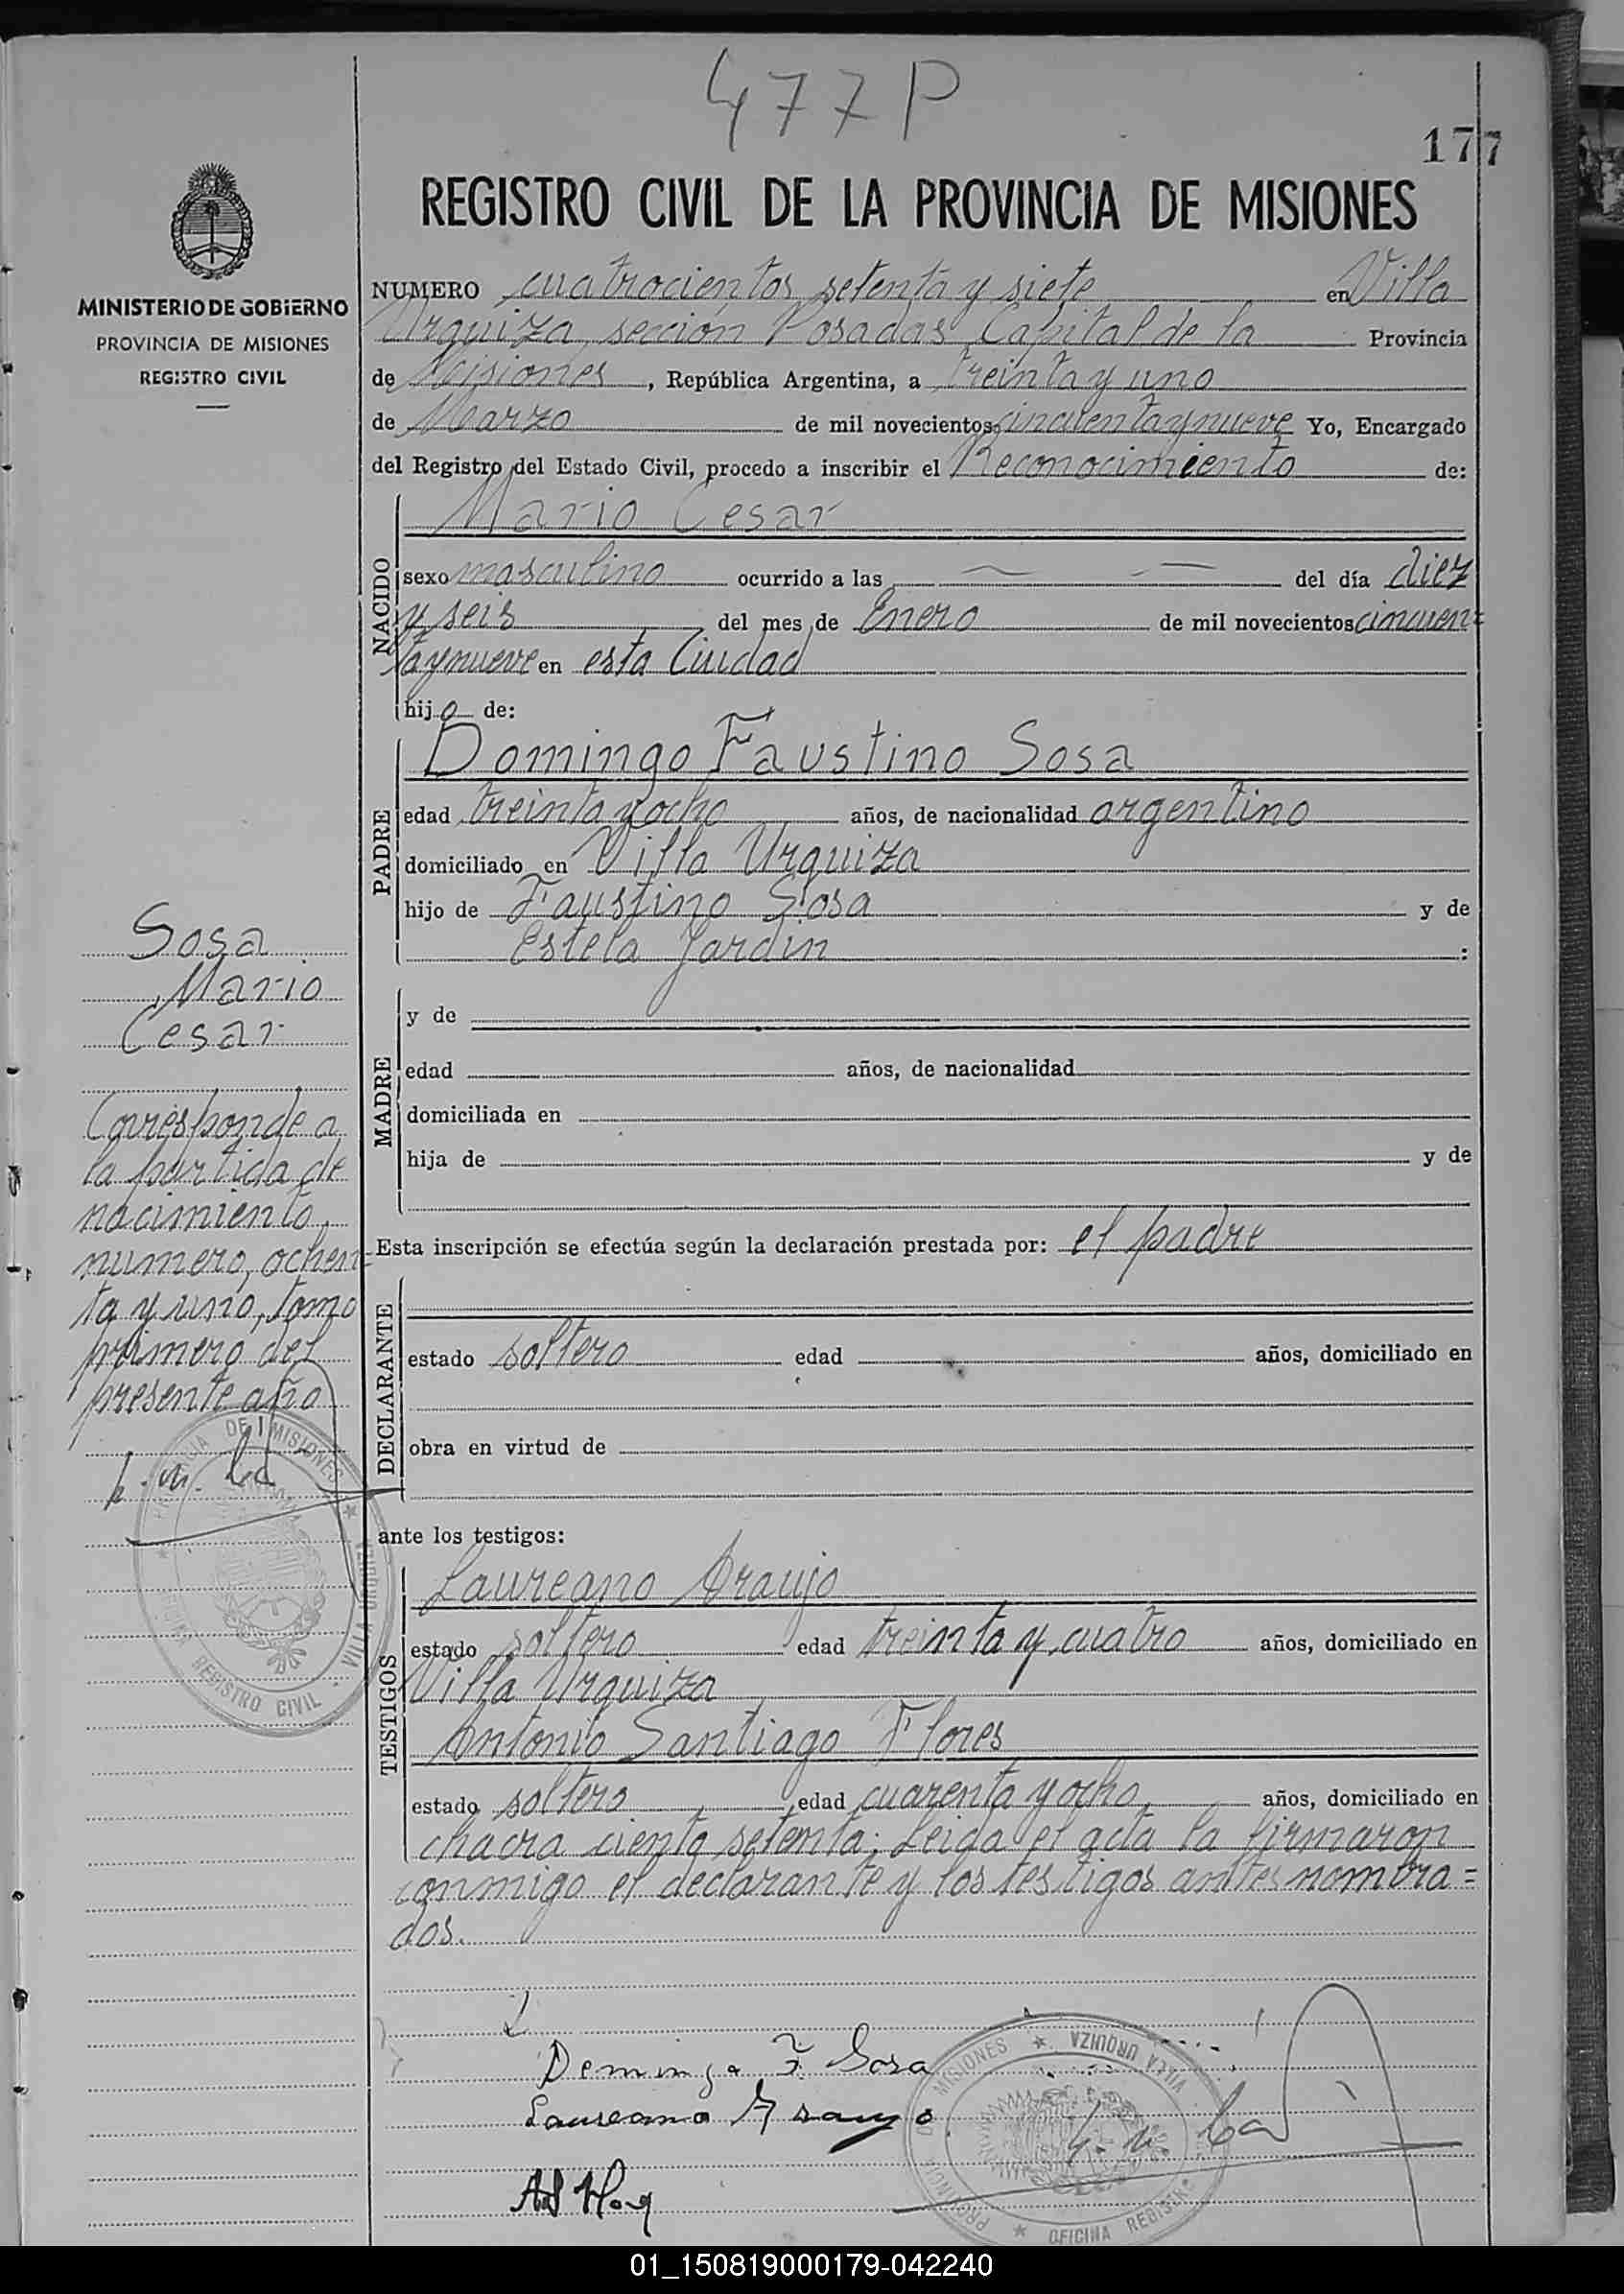 477P
177
REGISTRO CIVIL DE LA PROVINCIA DE MISIONES
MINISTERIO DE GOBIERNO
PROVINCIA DE MISIONES
REGISTRO CIVIL
NUMERO cuatrocientos setenta y siete en Villa
Urquiza sección Posadas Capital de la Provincia
de Misiones, República Argentina, a treinta y uno
de Marzo de mil novecientos cincuenta y nueve Yo, Encargado
del Registro del Estado Civil, procedo a inscribir el Reconocimiento de:
NACIDO
Mario Cesar
sexo masculino ocurrido a las — — del día diez
y seis del mes de Enero de mil novecientos cincuen=
ta y nueve en esta Ciudad
hijo de:
PADRE
Domingo Faustino Sosa
edad treinta y ocho años, de nacionalidad argentino
domiciliado en Villa Urquiza
hijo de Faustino Sosa y de
Estela Jardin :
MADRE
y de
edad años, de nacionalidad
domiciliada en
hija de y de
Esta inscripción se efectúa según la declaración prestada por: el padre
DECLARANTE
estado soltero edad años, domiciliado en
obra en virtud de
ante los testigos:
TESTIGOS
Laureano Araujo
estado soltero edad treinta y cuatro años, domiciliado en
Villa Urquiza
Antonio Santiago Flores
estado soltero edad cuarenta y ocho años, domiciliado en
chacra ciento setenta; Leida el acta la firmaron
conmigo el declarante y los testigos antes nombra=
dos.
Sosa
Mario
Cesar
Corresponde a
la partida de
nacimiento,
numero, ochen-
ta y uno, tomo
primero del
presente año
PROVINCIA DE MISIONES
VILLA URQUIZA
OFICINA REGISTRO CIVIL
Domingo F. Sosa
Laureano Araujo
PROVINCIA DE MISIONES
VILLA URQUIZA
OFICINA REGISTRO
01_150819000179-042240